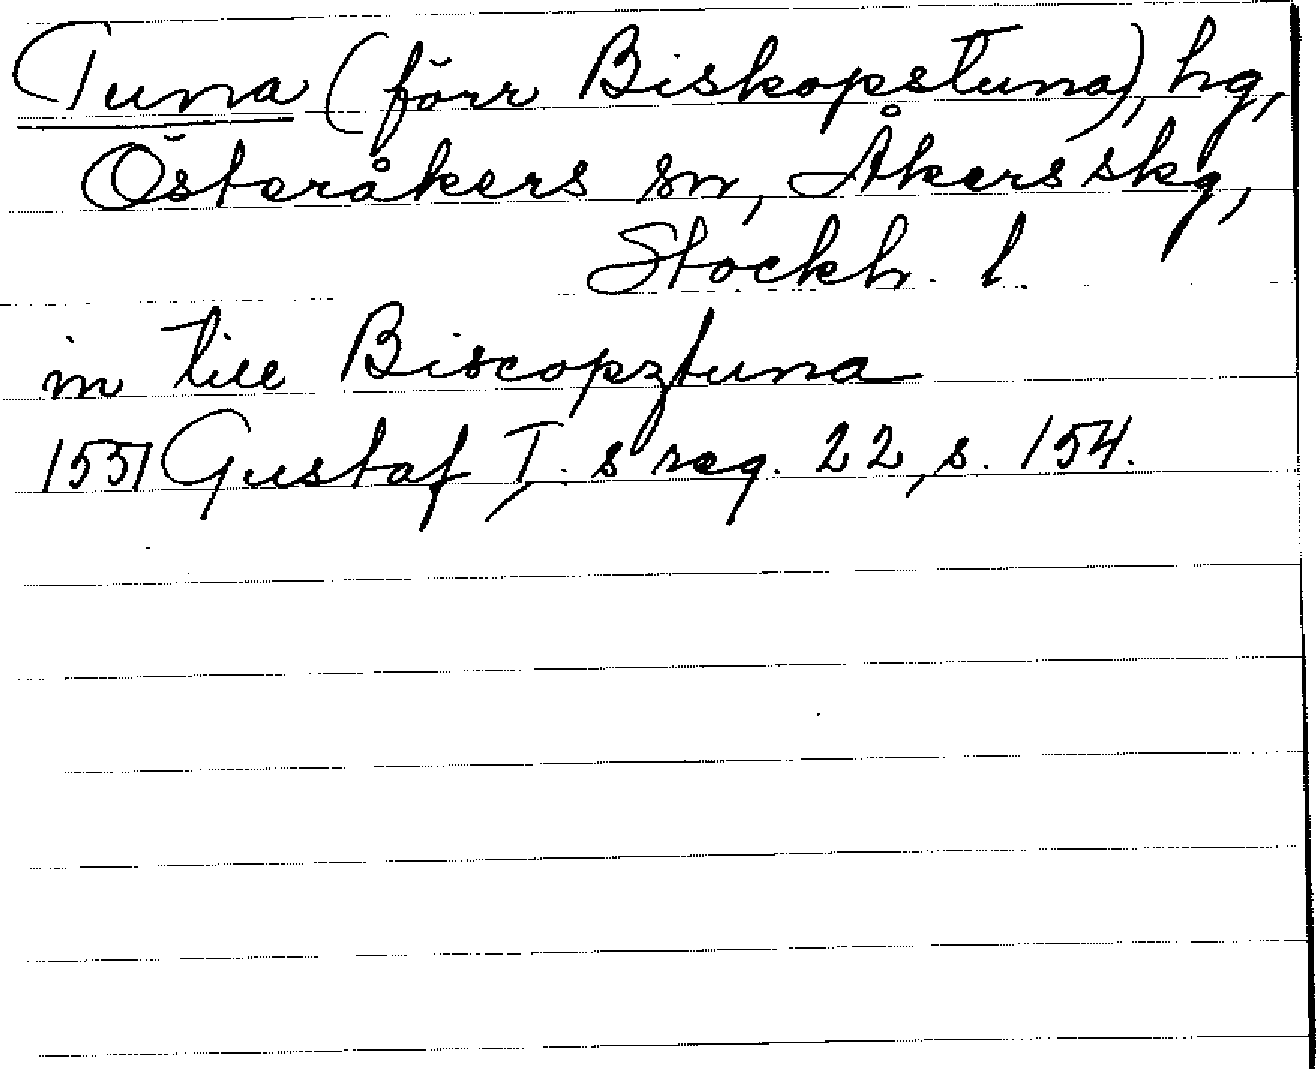 Tuna (förr Biskopstuna), hg,
Österåkers sn, Åkers skg,
Stockh. l.
in till Biscopztuna
1551 Gustaf I. s reg. 22, s. 154.